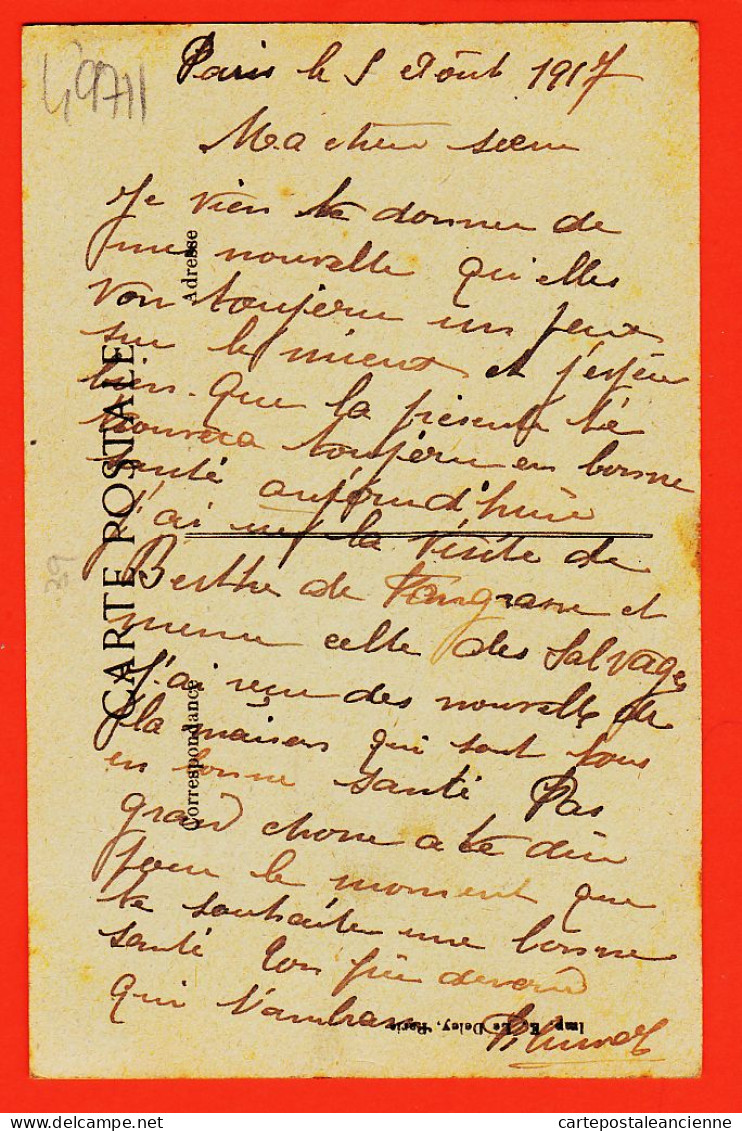 49711
Paris le 5 Août 1917
Ma chere sœur
Je vien te donner de
me nouvelle qu'elles
von toujeru un peux
sur le mieux et j'espère
bien que la présente te
trouvera toujeru en bonne
santé aujourd'huie
j'ai eu la visite de
Berthe de et
meme celle des Salvages
J'ai reue des nouvelle de
la maison qui sont tous
en bonne santé Pas
grand chose a te dire
pour le moment que
te souhaite une bonne
santé Ton frère devoué
qui t'embrasse
CARTE POSTALE
Adresse
Correspondance
Imp. E. Le Deley, Paris
39
cartepostaleancienne